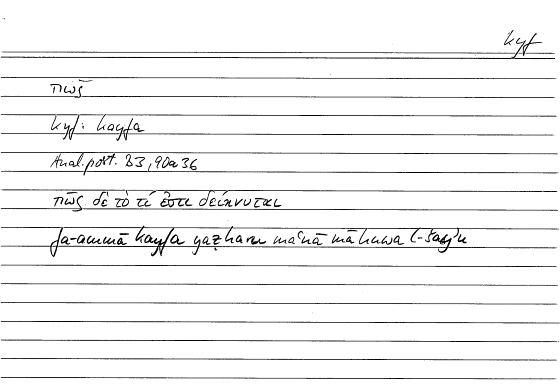 kyf
πῶς
kyf: kayfa
Anal. post. B3, 90a36
πῶς δὲ τὸ τί ἐστι δείκνυται
fa-ammā kayfa yaẓharu maʿnā mā huwa l-šayʾu